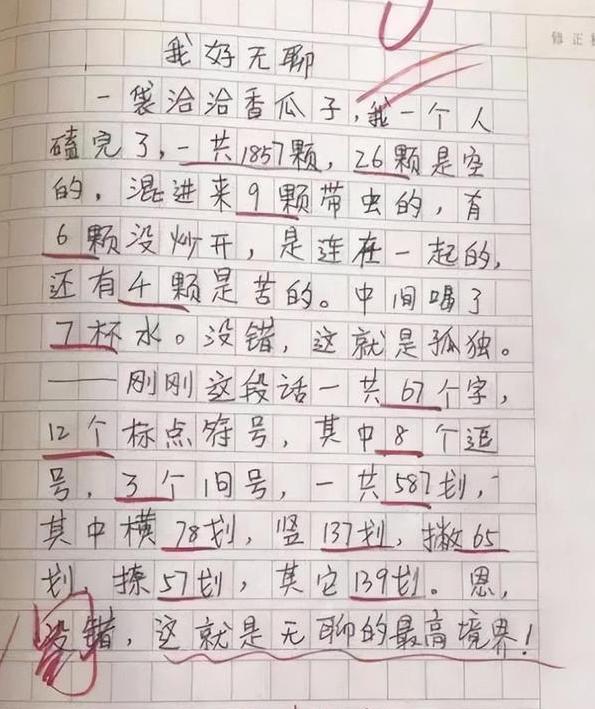 我好无聊
一袋洽洽香瓜子,我一个人
磕完了,一共1857颗,26颗是空
的,混进来9颗带虫的,有
6颗没炒开,是连在一起的,
还有4颗是苦的。中间喝了
7杯水。没错,这就是孤独。
——刚刚这段话一共67个字,
12个标点符号,其中8个逗
号,3个句号,一共587划,
其中横78划,竖137划,撇65
划,捺57划,其它139划。恩,
没错,这就是无聊的最高境界!
修正